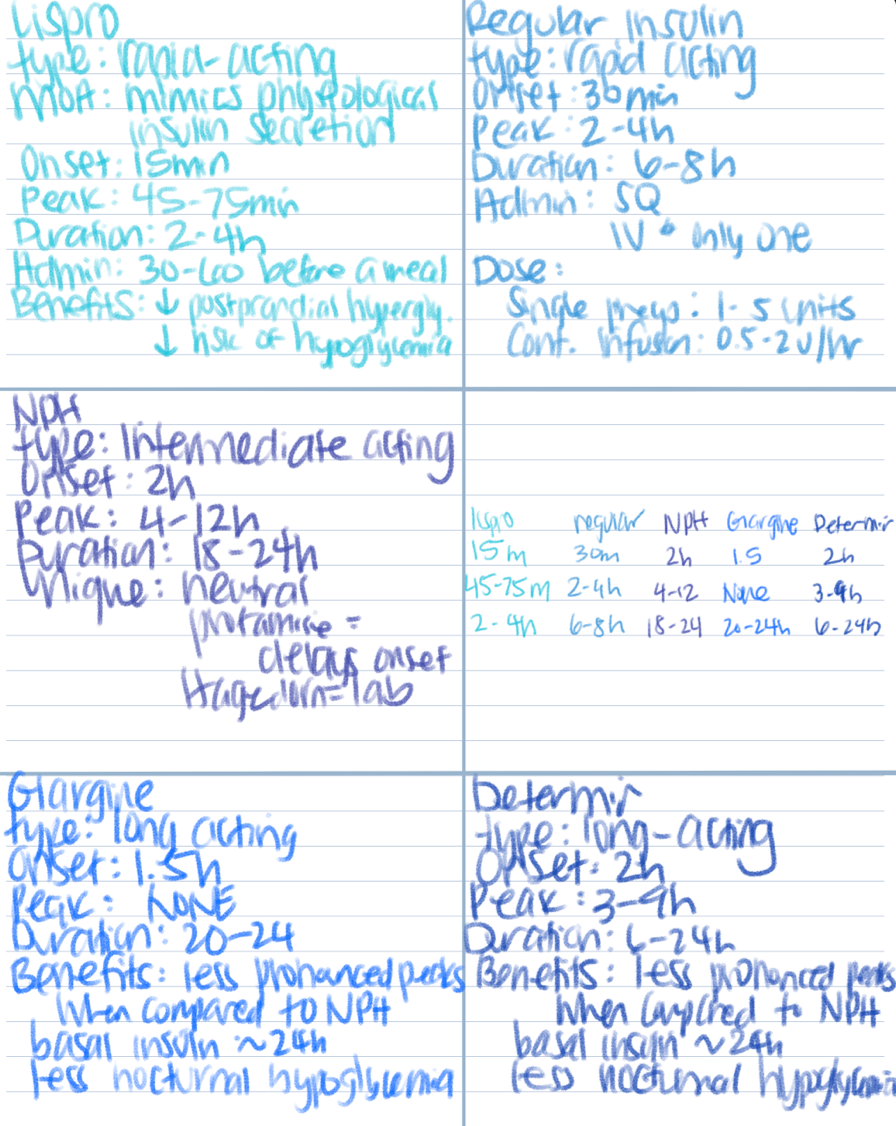 Lispro
type: rapid-acting
MOA: mimics physiological
insulin secretion
Onset: 15min
Peak: 45-75min
Duration: 2-4h
Admin: 30-60 before a meal
Benefits: ↓ postprandial hypergly.
↓ risk of hypoglycemia
Regular Insulin
type: rapid acting
Onset: 30min
Peak: 2-4h
Duration: 6-8h
Admin: SQ
IV * only one
Dose:
Single preps: 1-5 units
Cont. infusion: 0.5-2u/hr
NPH
type: Intermediate acting
Onset: 2h
Peak: 4-12h
Duration: 18-24h
Unique: neutral
protamine =
delays onset
Hagedorn=lab
lispro regular NPH Glargine Determir
15m 30m 2h 1.5 2h
45-75m 2-4h 4-12 None 3-9h
2-4h 6-8h 18-24 20-24h 6-24h
Glargine
type: long acting
Onset: 1.5h
Peak: NONE
Duration: 20-24
Benefits: less pronounced peaks
When compared to NPH
basal insulin ~24h
less nocturnal hypoglycemia
Determir
type: long-acting
Onset: 2h
Peak: 3-9h
Duration: 6-24h
Benefits: less pronounced peaks
When compared to NPH
basal insulin ~24h
less nocturnal hypoglycemia